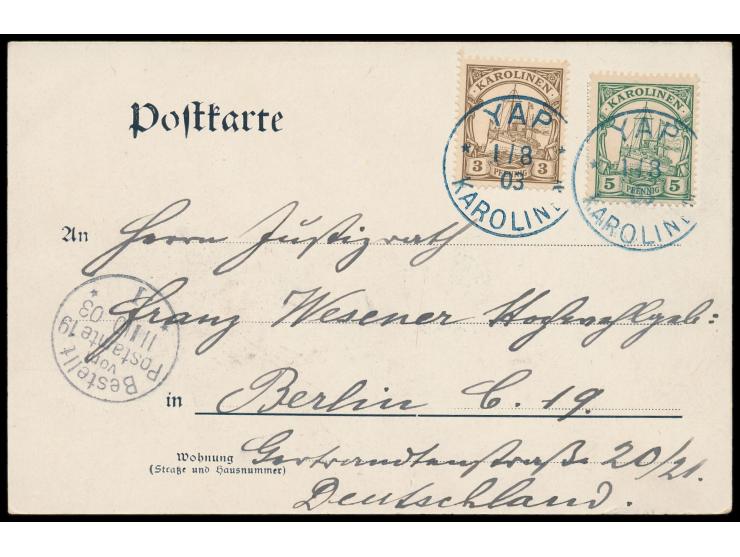 KAROLINEN
3 PFENNIG 3
KAROLINEN
5 PFENNIG 5
YAP
1/8
03
KAROLINEN
YAP
1/8
03
KAROLINEN
Postkarte
An Herrn Justizrath
Franz Wesener Hochwohlgeb:
in Berlin C. 19.
Wohnung
(Straße und Hausnummer)
Gertraudtenstraße 20/21.
Deutschland.
Bestellt
vom
Postamte 19
03